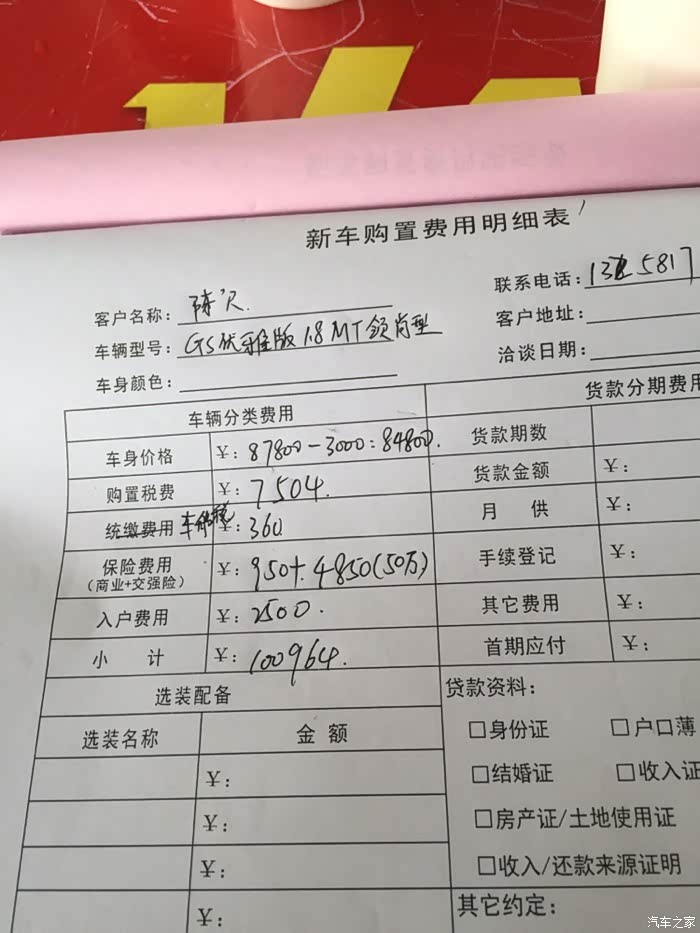 新车购置费用明细表
客户名称：陈
联系电话：
车辆型号：GS优雅版 1.8 MT领尚型
客户地址：
车身颜色：
洽谈日期：
车辆分类费用
货款分期费用
车身价格 ¥：87800-3000：84800.
货款期数
购置税费 ¥：7504.
货款金额 ¥：
统缴费用 车船税 ¥：360
月 供 ¥：
保险费用 ¥：950+.4850(50万)
（商业+交强险）
手续登记 ¥：
入户费用 ¥：2500.
其它费用 ¥：
小 计 ¥：100964.
首期应付 ¥：
选装配备
贷款资料：
选装名称 金 额
□身份证 □户口薄
¥：
□结婚证 □收入证
¥：
□房产证/土地使用证
¥：
□收入/还款来源证明
¥：
其它约定：
汽车之家